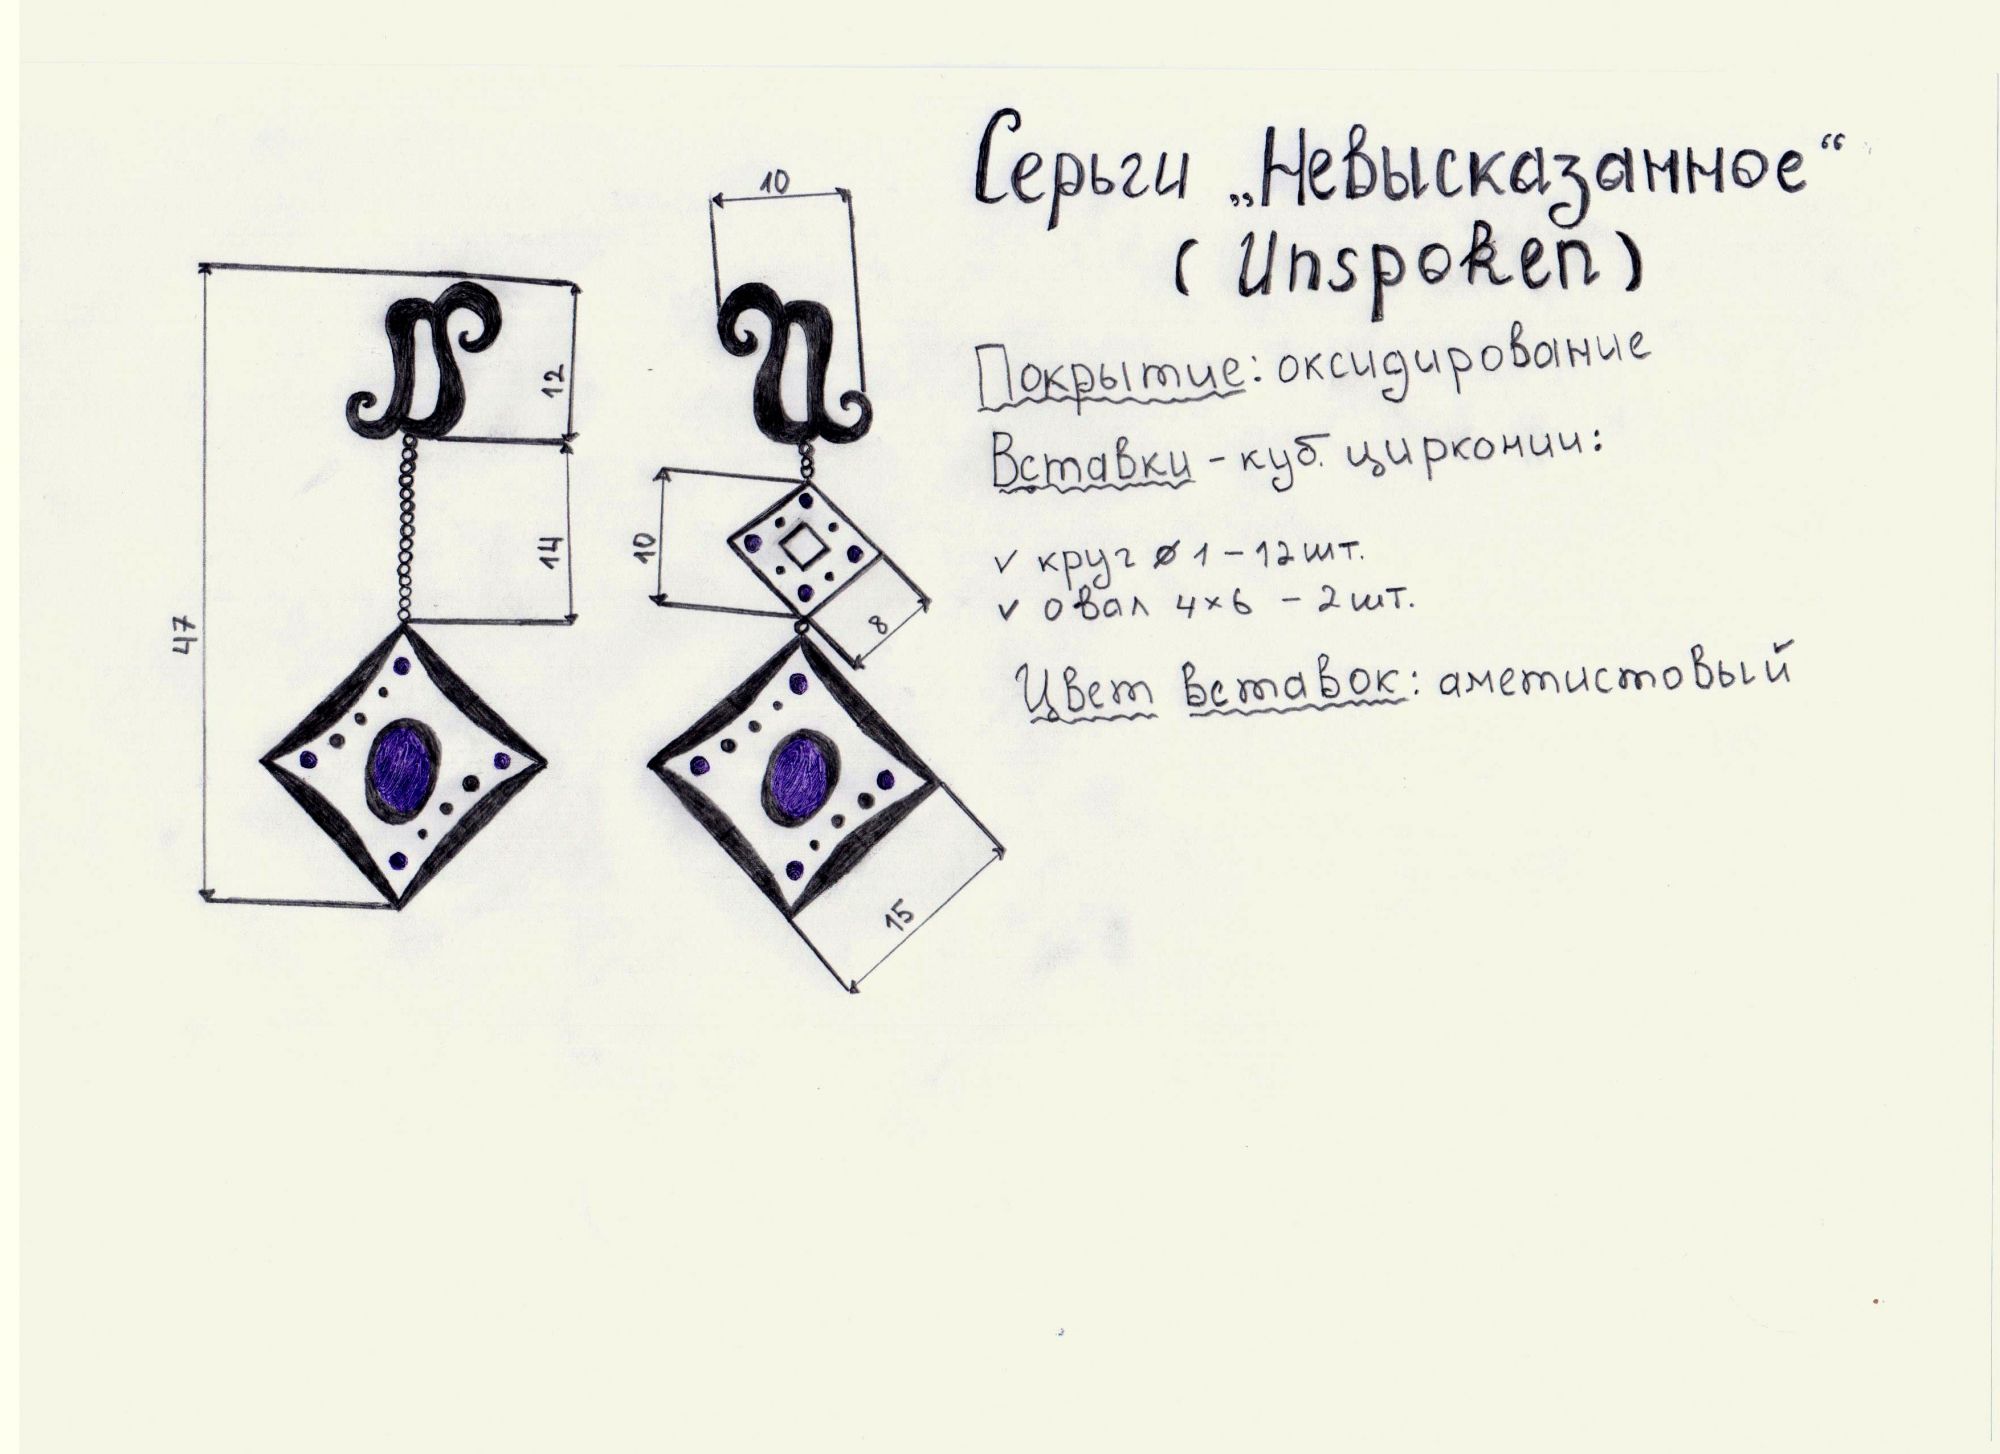 Серьги „Невысказанное“
(Unspoken)
Покрытие: оксидирование
Вставки - куб. цирконии:
✓ круг ø 1 - 12 шт.
✓ овал 4×6 - 2 шт.
Цвет вставок: аметистовый
10
12
14
47
10
8
15